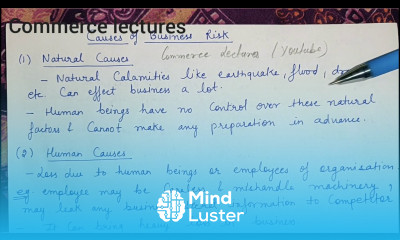 Commerce lectures
Causes of Business Risk
(1) Natural Causes Commerce lectures (Youtube)
- Natural Calamities like earthquake, flood,
etc. Can effect business a lot.
- Human beings have no control over these natural
factors & Cannot make any preparation in advance.
(2) Human Causes
- Loss due to human beings or employees of organisation
eg. employee may be & mishandle machinery,
may leak any business information to Competitor
Mind
Luster
- It can bring heavy